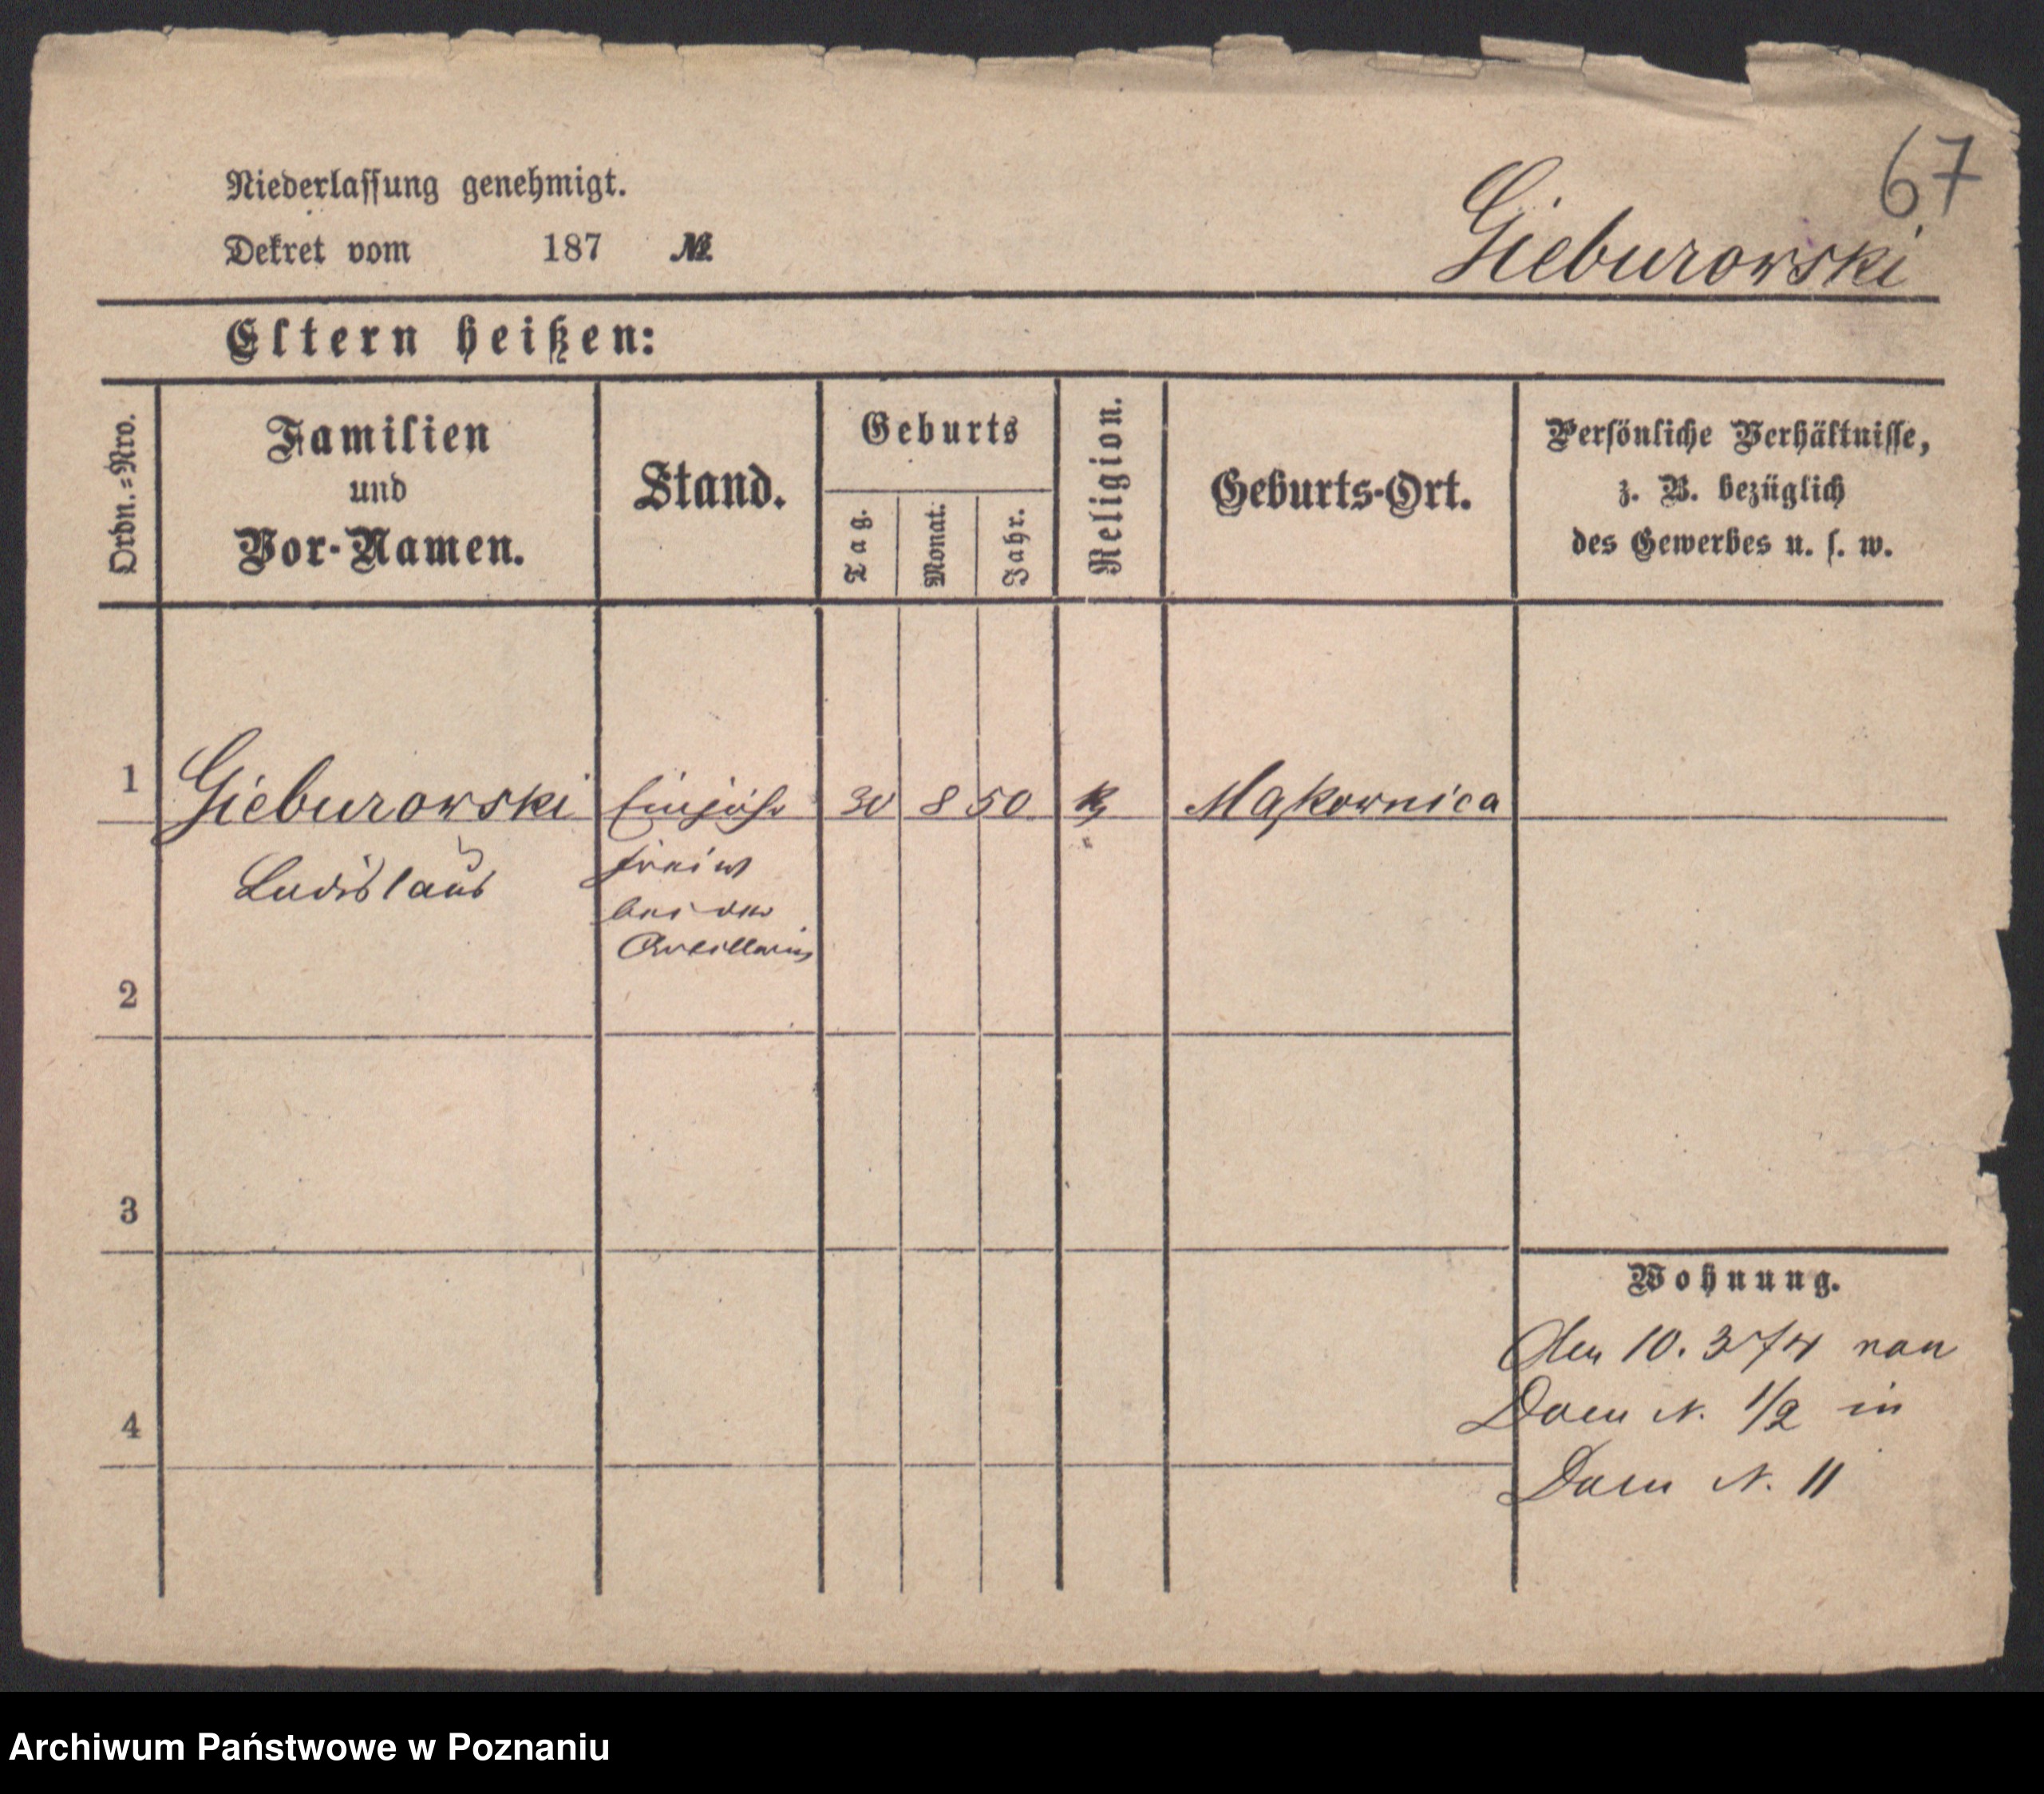 67
Niederlassung genehmigt.
Dekret vom 187 №
Gieburowski
Eltern heißen:
Ordn.=Nro.
Familien
und
Vor-Namen.
Stand.
Geburts
Tag.
Monat.
Jahr.
Religion.
Geburts-Ort.
Persönliche Verhältnisse,
z. B. bezüglich
des Gewerbes u. s. w.
1 Gieburowski Einjähr 30 8 50 k Mąkownica
Ladislaus
freiw
bei der
Artillerie
2
3
Wohnung.
Den 10. 3 74 von
Dom N. 1/2 in
4
Dom N. 11
Archiwum Państwowe w Poznaniu